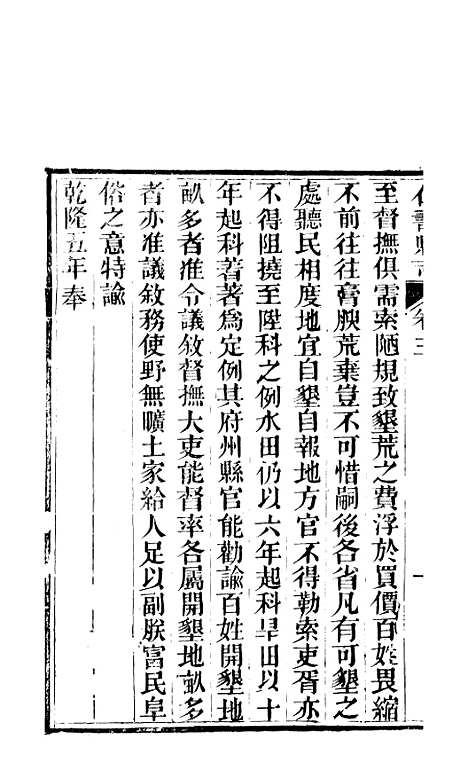 仁壽縣志 卷三
至督撫俱需索陋規致墾荒之費浮於買價百姓畏縮
不前往往膏腴荒棄豈不可惜嗣後各省凡有可墾之
處聽民相度地宜自墾自報地方官不得勒索吏胥亦
不得阻撓至陞科之例水田仍以六年起科旱田以十
年起科著著為定例其府州縣官能勸諭百姓開墾地
畝多者准令議敘督撫大吏能督率各屬開墾地畝多
者亦准議敘務使野無曠土家給人足以副朕富民阜
俗之意特諭
乾隆五年奉